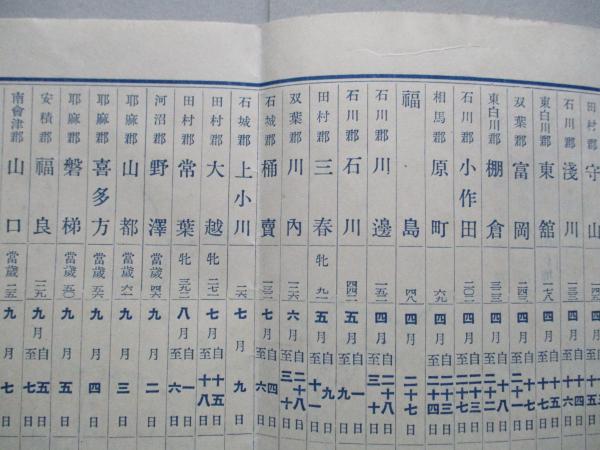 田村郡 守山
石川郡 淺川 四月自十四至十六日
東白川郡 東舘 一七八 四月自十五至十七日
双葉郡 富岡 四月
東白川郡 棚倉 四月自十八至二十二日
石川郡 小作田 二〇二 四月
相馬郡 原町 六九 四月自二十三至二十四日
福島 四八 四月二十七日
石川郡 川邊 一五二 四月自二十八至三十日
石川郡 石川 四四二 五月自一至九日
田村郡 三春 牝 九一 五月自九至十一日
双葉郡 川內 六月自二十八至三十日
石城郡 桶賣 七月自四至六日
石城郡 上小川 二六 七月九日
田村郡 大越 牝 二七一 七月自十五至十八日
田村郡 常葉 牝 三九二 八月自一至六日
河沼郡 野澤 當歲 四六 九月二日
耶麻郡 山都 當歲 六一 九月三日
耶麻郡 喜多方 當歲 五六 九月四日
耶麻郡 磐梯 當歲 五〇 九月五日
安積郡 福良 九月自五至七日
南會津郡 山口 當歲 二五 九月七日